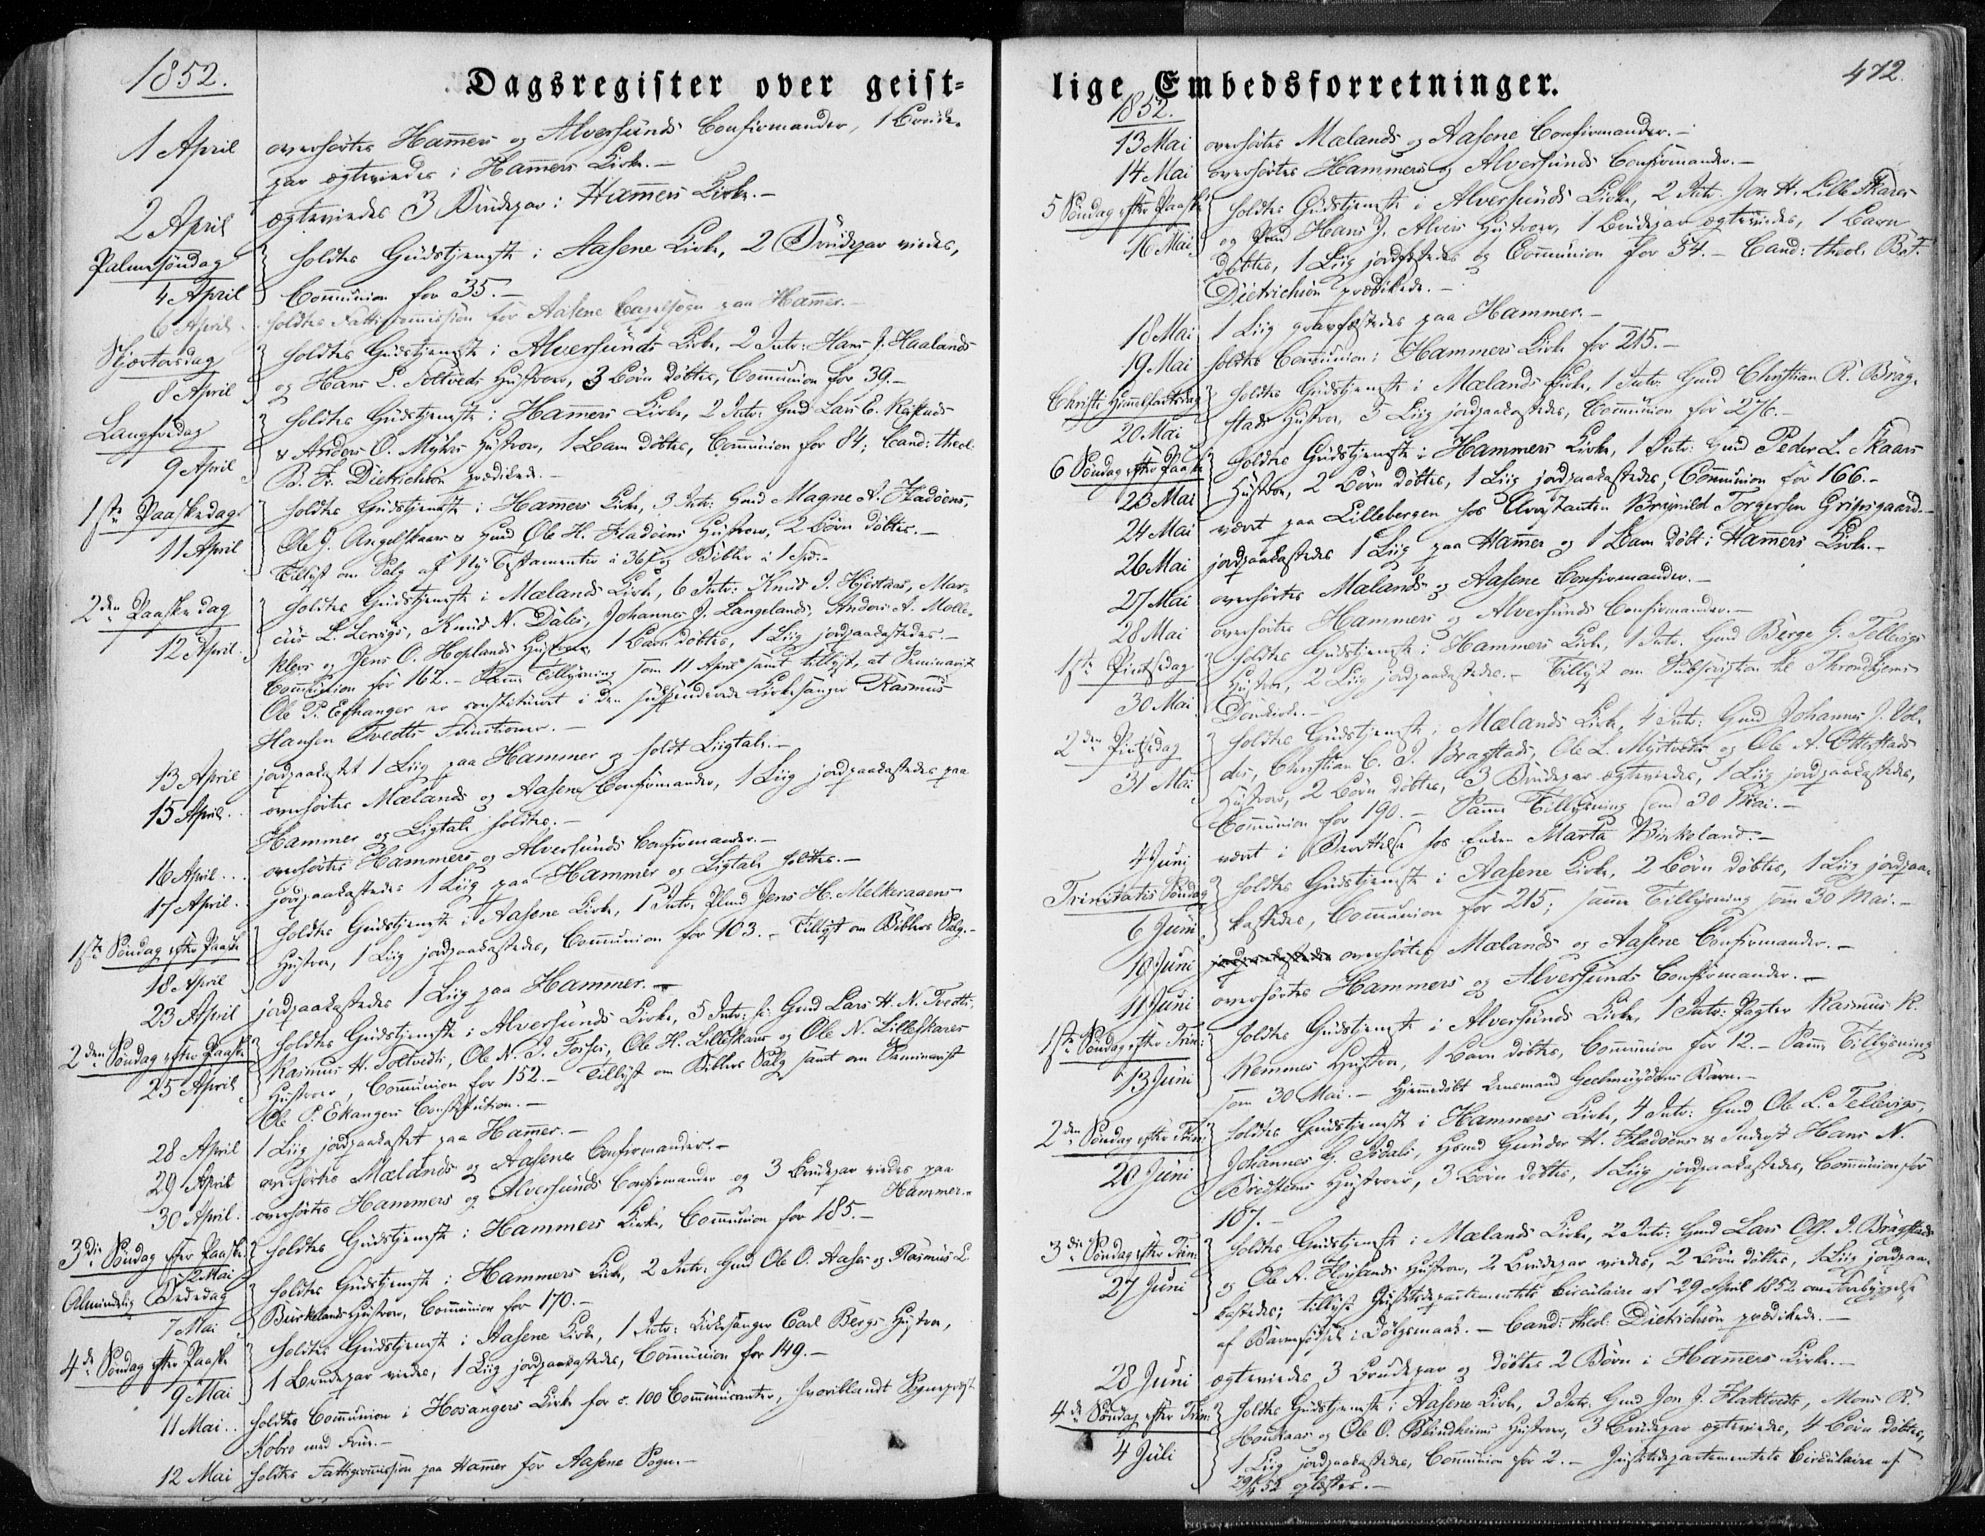 1852.
Dagsregister over geist-
1 April overhørtes Hammers og Alversunds Confirmander, 1 Brude-
par ægteviedes i Hammers Kirke.—
2 April ægteviedes 3 Brudepar i Hammers Kirke.—
Palmesøndag 4 April holdtes Gudstjeneste i Aasene Kirke, 2 Brudepar viedes,
Communion for 35.—
6 April holdtes Fattigcommission for Aasene Capelsogn paa Hammer.—
Skjærtorsdag 8 April holdtes Gudstjeneste i Alversunds Kirke, 2 Intr: Hans J. Haalands
og Hans L. Toltveds Hustroer, 3 Børn døbtes, Communion for 39.—
Langfredag 9 April holdtes Gudstjeneste i Hammers Kirke, 2 Intr: Gmd Lars E.
& Anders O. Myhrs Hustroer, 1 Barn døbtes, Communion for 84; Cand: theol.
B. Fr. Dietrichson prædikede.—
1ste Paaskedag 11 April holdtes Gudstjeneste i Hammers Kirke, 3 Intr: Gmd Magne A. Fladøens,
Ole J. Angelskaar & Hmd Ole H. Fladøens Hustroer, 2 Børn døbtes.—
Tillyst om Salg af Ny Testamenter à 36 ß og Bibler à 1 Spd.—
2den Paaskedag 12 April holdtes Gudstjeneste i Mælands Kirke, 6 Intr: Knud I. Hjertaas, Mar-
cus L. Lervigs, Knud N. Dales, Johannes J. Langelands, Anders A. Molle-
klevs og Jens O. Hoplands Hustroer, 1 Barn døbtes, 1 Liig jordpaakastedes.—
Communion for 162.— Samme Tillysning som 11 April samt tillyst, at Seminarist
Ole P. Eknanger er constitueret i den suspenderede Kirkesanger Rasmus
Hansen Tvedts Functioner.—
13 April jordpaakastet 1 Liig paa Hammer og holdt Liigtale.—
15 April overhørtes Mælands og Aasene Confirmander, 1 Liig jordpaakastedes paa
Hammer og Ligtale holdtes.—
16 April overhørtes Hammers og Alversunds Confirmander.—
17 April jordpaakastedes 1 Liig paa Hammer og Ligtale holdtes.—
1ste Søndag efter Paaske 18 April holdtes Gudstjeneste i Aasene Kirke, 1 Intr. Plmd Jens H. Melkeraaens
Hustroe, 1 Liig jordpaakastedes, Communion for 103.— Tillyst om Biblers Salg.—
23 April jordpaakastedes 1 Liig paa Hammer.—
2den Søndag efter Paaske 25 April holdtes Gudstjeneste i Alversunds Kirke, 5 Intr: Gmd Lars H. N. Tvedts,
Rasmus H. Toltvedts, Ole N. I. Fosses, Ole H. Lilleskare og Ole N. Lilleskares
Hustroer, Communion for 152.— Tillyst om Biblers Salg samt om Seminarist
Ole P. Ekangers Constitution.—
28 April 1 Liig jordpaakastet paa Hammer.—
29 April overhørtes Mælands og Aasenes Confirmander.—
30 April overhørtes Hammers og Alversunds Confirmander og 3 Brudepar viedes paa
Hammer.—
3die Søndag efter Paaske 2 Mai holdtes Gudstjeneste i Hammers Kirke, Communion for 185.—
Almindelig Bededag 7 Mai holdtes Gudstjeneste i Hammers Kirke, 2 Intr. Gmd Ole O. Aases og Rasmus L.
Birkelands Hustroer, Communion for 170.—
4de Søndag efter Paaske 9 Mai holdtes Gudstjeneste i Aasene Kirke, 1 Intr: Kirkesanger Carl Bergs Hustroe,
1 Brudepar viedes, 1 Liig jordpaakastedes, Communion for 149.—
11 Mai holdtes Communion i Hosangers Kirke for c. 100 Communicanter, hvoriblandt Sognepræst
Kobro med Frue.—
12 Mai holdtes Fattigcommission paa Hammer for Aasene Sogn.—
lige Embedsforretninger.
472.
1852.
13 Mai overhørtes Mælands og Aasene Confirmander.—
14 Mai overhørtes Hammers og Alversunds Confirmander.—
5 Søndag efter Paaske 16 Mai holdtes Gudstjeneste i Alversunds Kirke, 2 Intr. Jon H. Lille Skares
og Hans J. Alvers Hustroer, 1 Brudepar ægteviedes, 1 Barn
døbtes, 1 Liig jordfæstedes og Communion for 54.— Cand: theol. B. F.
Dietrichson prædikede.—
18 Mai 1 Liig gravfæstedes paa Hammer.—
19 Mai holdtes Communion i Hammers Kirke for 215.—
Christi Himmelfartsdag 20 Mai holdtes Gudstjeneste i Mælands Kirke, 1 Intr. Gmd Christian R. Brag-
stads Hustroe, 5 Liig jordpaakastedes, Communion for 276.—
6 Søndag efter Paaske 23 Mai holdtes Gudstjeneste i Hammers Kirke, 1 Intr. Gmd Peder L. Skaars
Hustroe, 2 Børn døbtes, 1 Liig jordpaakastedes, Communion for 166.—
24 Mai været paa Lillebergen hos Arrestantin Brynild Torgersen Gripsgaard.—
26 Mai jordpaakastedes 1 Liig paa Hammer og 1 Barn døbt i Hammers Kirke.—
27 Mai overhørtes Mælands og Aasene Confirmander.—
28 Mai overhørtes Hammers og Alversunds Confirmander.—
1ste Pintsedag 30 Mai holdtes Gudstjeneste i Hammers Kirke, 1 Intr. Gmd Børge G. Tellevigs
Hustroe, 2 Liig jordpaakastedes.— Tillyst om Subscription til Throndhjems
Domkirke.—
2den Pintsedag 31 Mai holdtes Gudstjeneste i Mælands Kirke, 4 Intr: Gmd Johannes J. Vol-
des, Christian C. I. Bragstads, Ole L. Myrtvedts og Ole A. Otterstads
Hustroer, 2 Børn døbtes, 3 Brudepar ægteviedes, 1 Liig jordpaakastedes,
Communion for 190.— Samme Tillysning som 30 Mai.—
4 Juni været i hos Enken Marta Birkeland.—
Trinitatis Søndag 6 Juni holdtes Gudstjeneste i Aasene Kirke, 2 Børn døbtes, 1 Liig jordpaa-
kastedes, Communion for 215; samme Tillysning som 30 Mai.—
10 Juni overhørtes Mælands og Aasene Confirmander.—
11 Juni overhørtes Hammers og Alversunds Confirmander.—
1ste Søndag efter Trin: 13 Juni holdtes Gudstjeneste i Alversunds Kirke, 1 Intr: Pagter Rasmus R.
Remmes Hustroe, 1 Barn døbtes, Communion for 12.— Samme Tillysning
som 30 Mai.— Hjemmedøbt Lensmand Geelmuydens Barn.—
2den Søndag efter Trin: 20 Juni holdtes Gudstjeneste i Hammers Kirke, 4 Intr: Gmd Ole L. Tellevigs,
Johannes G. Isdals, Hsmd Gunder H. Fladøens & Inderst Hans N.
Bredsteens Hustroer, 3 Børn døbtes, 1 Liig jordpaakastedes, Communion for
187.—
3die Søndag efter Trin: 27 Juni holdtes Gudstjeneste i Mælands Kirke, 2 Intr: Gmd Lars Ols. I. Bragstads
og Ole A. Høylands Hustroer, 2 Brudepar viedes, 2 Børn døbtes, 1 Liig jordpaa-
kastedes; tillyst Justitsdepartementets Circulaire af 29 April 1852 om Forebyggelse
af Barnefødsel i Dølgsmaal.— Cand: theol. Dietrichson prædikede.—
28 Juni ægteviedes 3 Brudepar og døbtes 2 Børn i Hammers Kirke.—
4de Søndag efter Trin: 4 Juli holdtes Gudstjeneste i Aasene Kirke, 3 Intr. Gmd Jon J. Flatteveits, Mons R.
Haukaas og Ole O. Blindheims Hustroer, 3 Brudepar ægteviedes, 4 Børn døbtes,
1 Liig jordpaakastedes, Communion for 2.— Justitsdepartementets Circulaire af
29/4 52 oplæstes.—